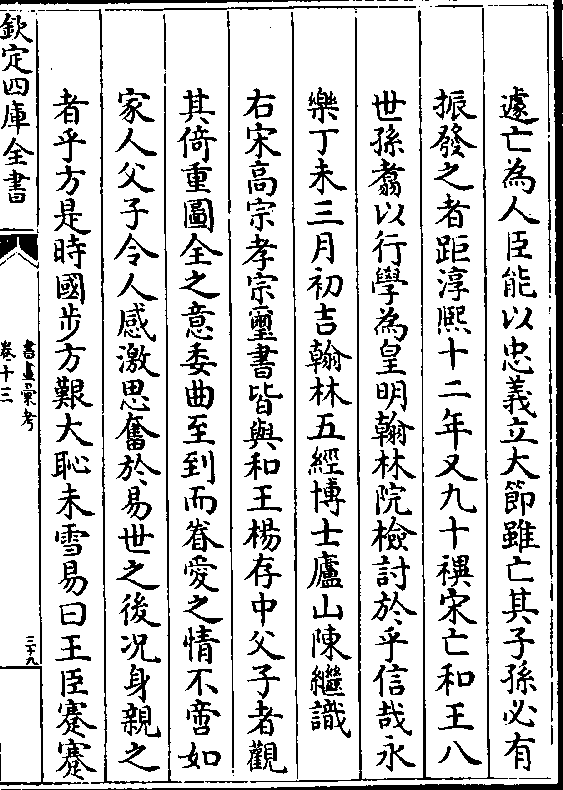 遽亡為人臣能以忠義立大節雖亡其子孫必有
振發之者距淳熙十二年又九十禩宋亡和王八
世孫翥以行學為皇明翰林院檢討於乎信哉永
樂丁未三月初吉翰林五經博士廬山陳繼識
右宋高宗孝宗璽書皆與和王楊存中父子者觀
其倚重圖全之意委曲至到而眷愛之情不啻如
家人父子令人感激思奮於易世之後况身親之
者乎方是時國步方艱大恥未雪易曰王臣蹇蹇
欽定四庫全書
書畫彙考
卷十三
三十九